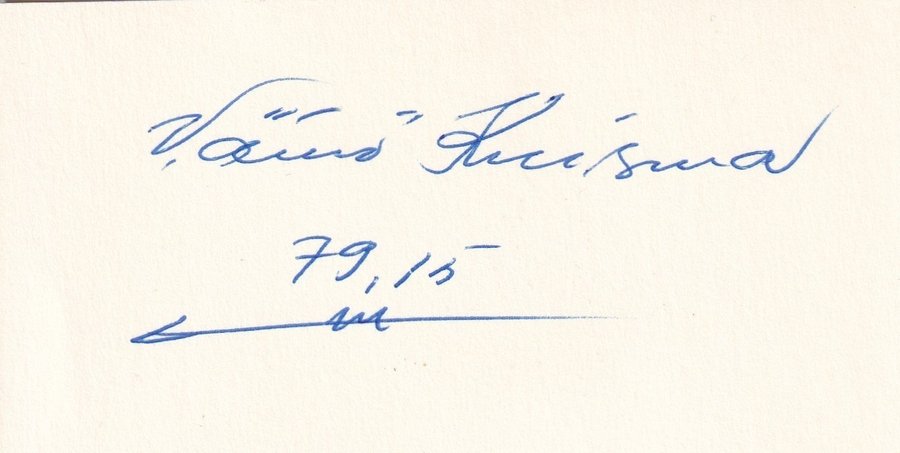 Väinö Kuisma
79,15
m